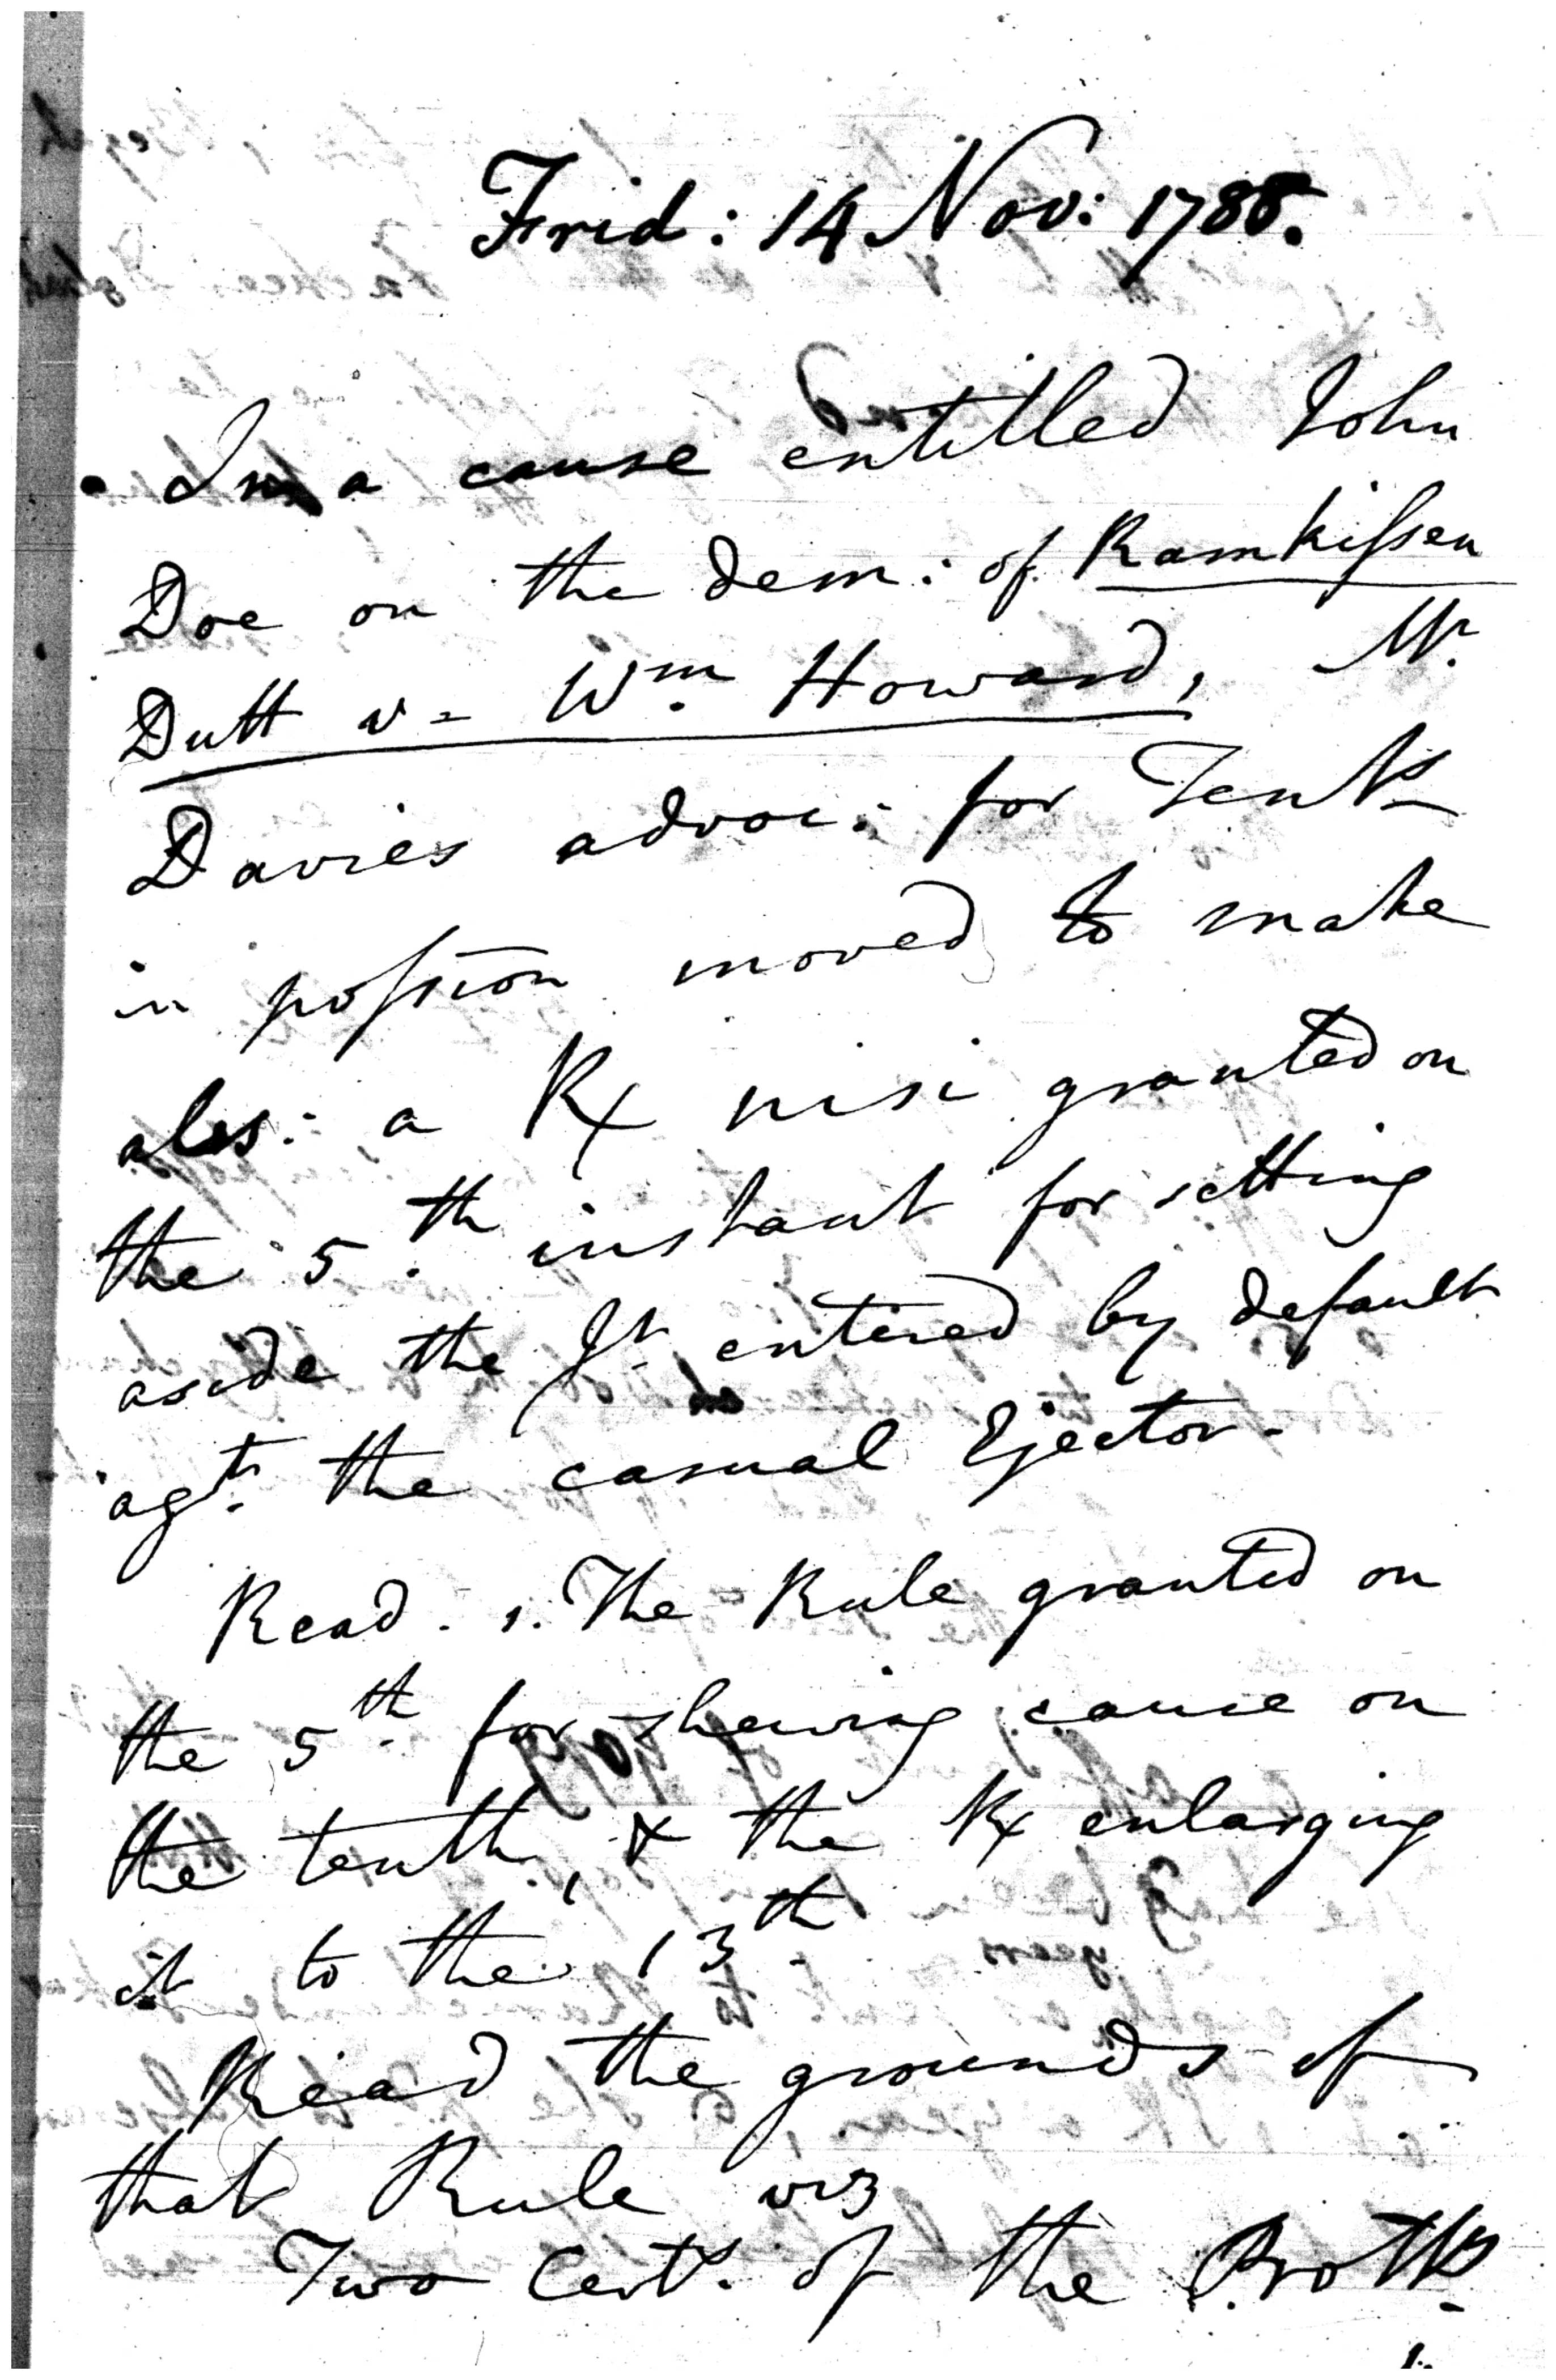 Frid: 14 Nov: 1788.
In a cause entitled John
Doe on the dem: of Ramkissen
Dutt v= Wm. Howard, Mr.
Davies advoc: for Tents
in possion moved to make
abs: a Rx nisi granted on
the 5.th instant for setting
aside the Jt entered by default
agt. the casual Ejector.
Read. 1. The Rule granted on
the 5th. for shewing cause on
the tenth, & the Rx enlarging
it to the 13th.
Read the grounds of
that Rule viz
Two Certs. of the Proth